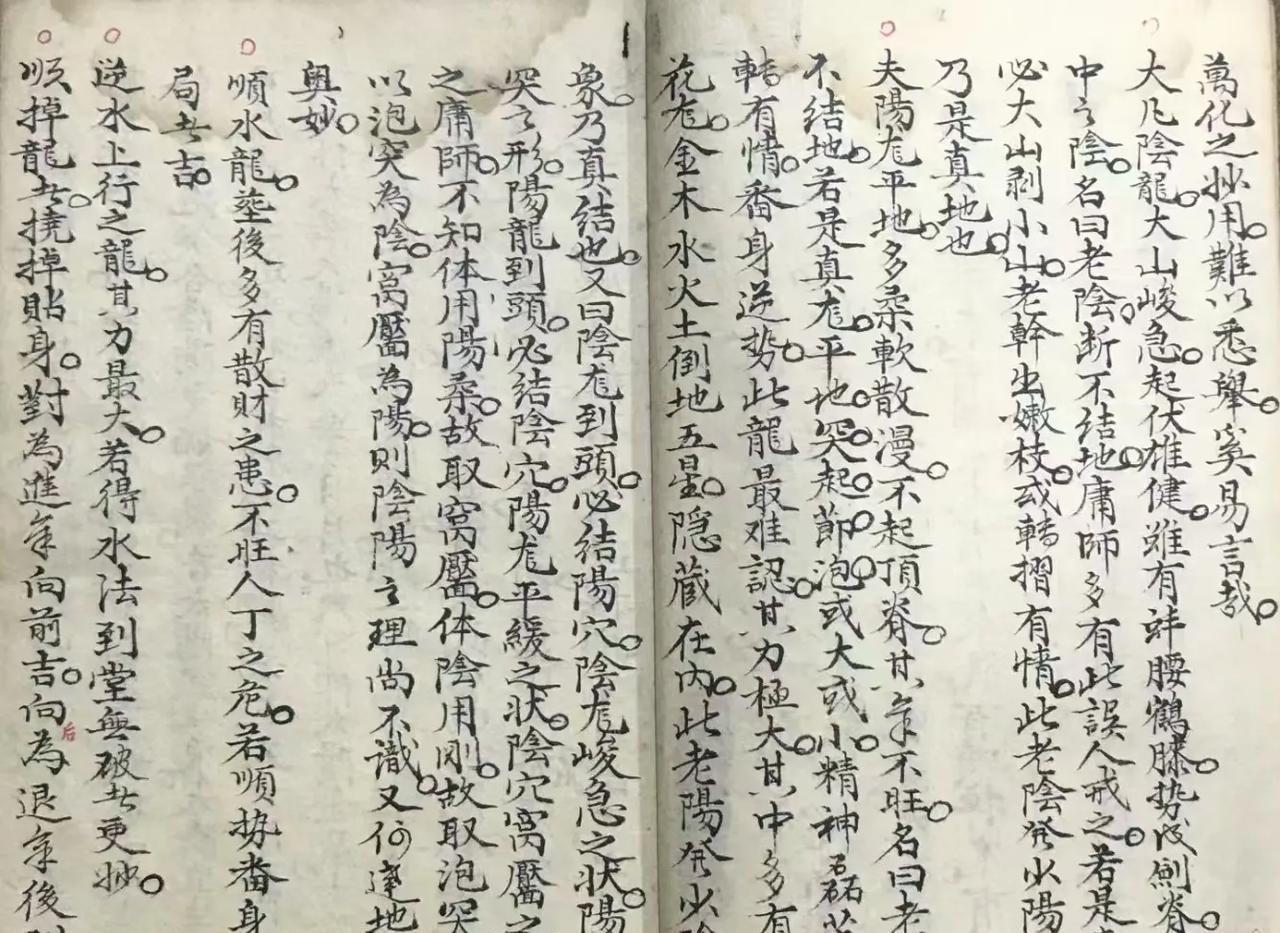 萬化之妙用。難以悉舉。奚易言哉。
大凡陰龍。大山峻急。起伏雄健。雖有蜂腰鶴膝。势成劍脊。
中之陰。名曰老陰。断不结地。庸師多有此誤人。戒之。若是
必大山剥小山。老幹出嫩枝。或轉摺有情。此老陰發少陽
乃是真地也。
夫陽龙平地。多柔軟散漫。不起頂脊。其氣不旺。名曰老
不结地。若是真龙。平地。突。起。節。泡。或大或小。精神磊落
轉有情。番身逆势。此龍最难認。其力極大。其中多有
花龙。金木水火土倒地五星。隐蔵在内。此老陽發少陰
象。乃真结也。又曰陰龙到頭。必结陽穴。陰龙峻急之状。陽
突之形。陽龍到頭。必结陰穴。陽龙平緩之状。陰穴窩靨之
之庸師。不知体用。陽柔。故取窩靨。体陰用刚。故取泡突
以泡突為陰。窩靨為陽。则陰陽之理尚不識。又何達地
奥妙。
順水龍。塋後多有散财之患。不旺人丁之危。若順势番身
局者吉。
逆水上行之龍。其力最大。若得水法到堂無破者更妙。
順掉龍者。撓掉貼身。對為進氣向前吉。向后為退氣後